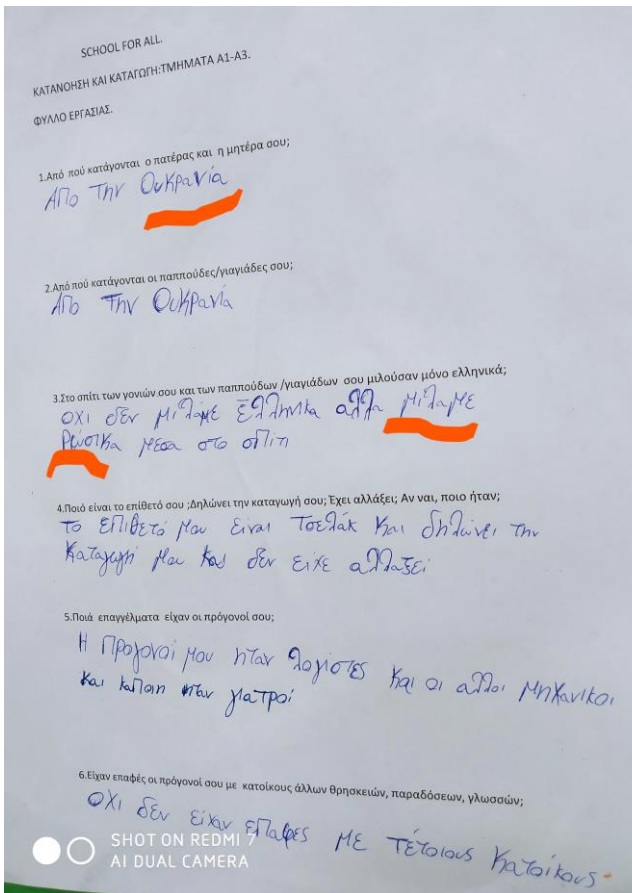 SCHOOL FOR ALL.
ΚΑΤΑΝΟΗΣΗ ΚΑΙ ΚΑΤΑΓΩΓΗ:ΤΜΗΜΑΤΑ Α1-Α3.
ΦΥΛΛΟ ΕΡΓΑΣΙΑΣ.
1.Από πού κατάγονται ο πατέρας και η μητέρα σου;
Απο την Ουκρανία
2.Από πού κατάγονται οι παππούδες/γιαγιάδες σου;
Απο την Ουκρανία
3.Στο σπίτι των γονιών σου και των παππούδων /γιαγιάδων σου μιλούσαν μόνο ελληνικά;
οχι δεν μιλάμε Ελληνικα αλλα μιλαμε
Ρώσικα μεσα στο σπίτι
4.Ποιό είναι το επίθετό σου ;Δηλώνει την καταγωγή σου; Έχει αλλάξει; Αν ναι, ποιο ήταν;
το επιθετό μου είναι Τσελάκ και δηλώνει την
καταγωγή μου και δεν είχε αλλαξεί
5.Ποιά επαγγέλματα είχαν οι πρόγονοί σου;
Η προγονοί μου ηταν λογιστες και οι αλλοι μηχανικοι
και καποιη ηταν γιατροί
6.Είχαν επαφές οι πρόγονοί σου με κατοίκους άλλων θρησκειών, παραδόσεων, γλωσσών;
οχι δεν είχαν επαφες με τέτοιους κατοίκους
SHOT ON REDMI 7
AI DUAL CAMERA